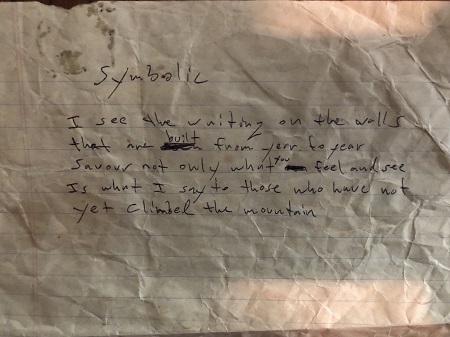 Symbolic
I see the writing on the walls
that are built from year to year
Savour not only what you feel and see
Is what I say to those who have not
yet climbed the mountain